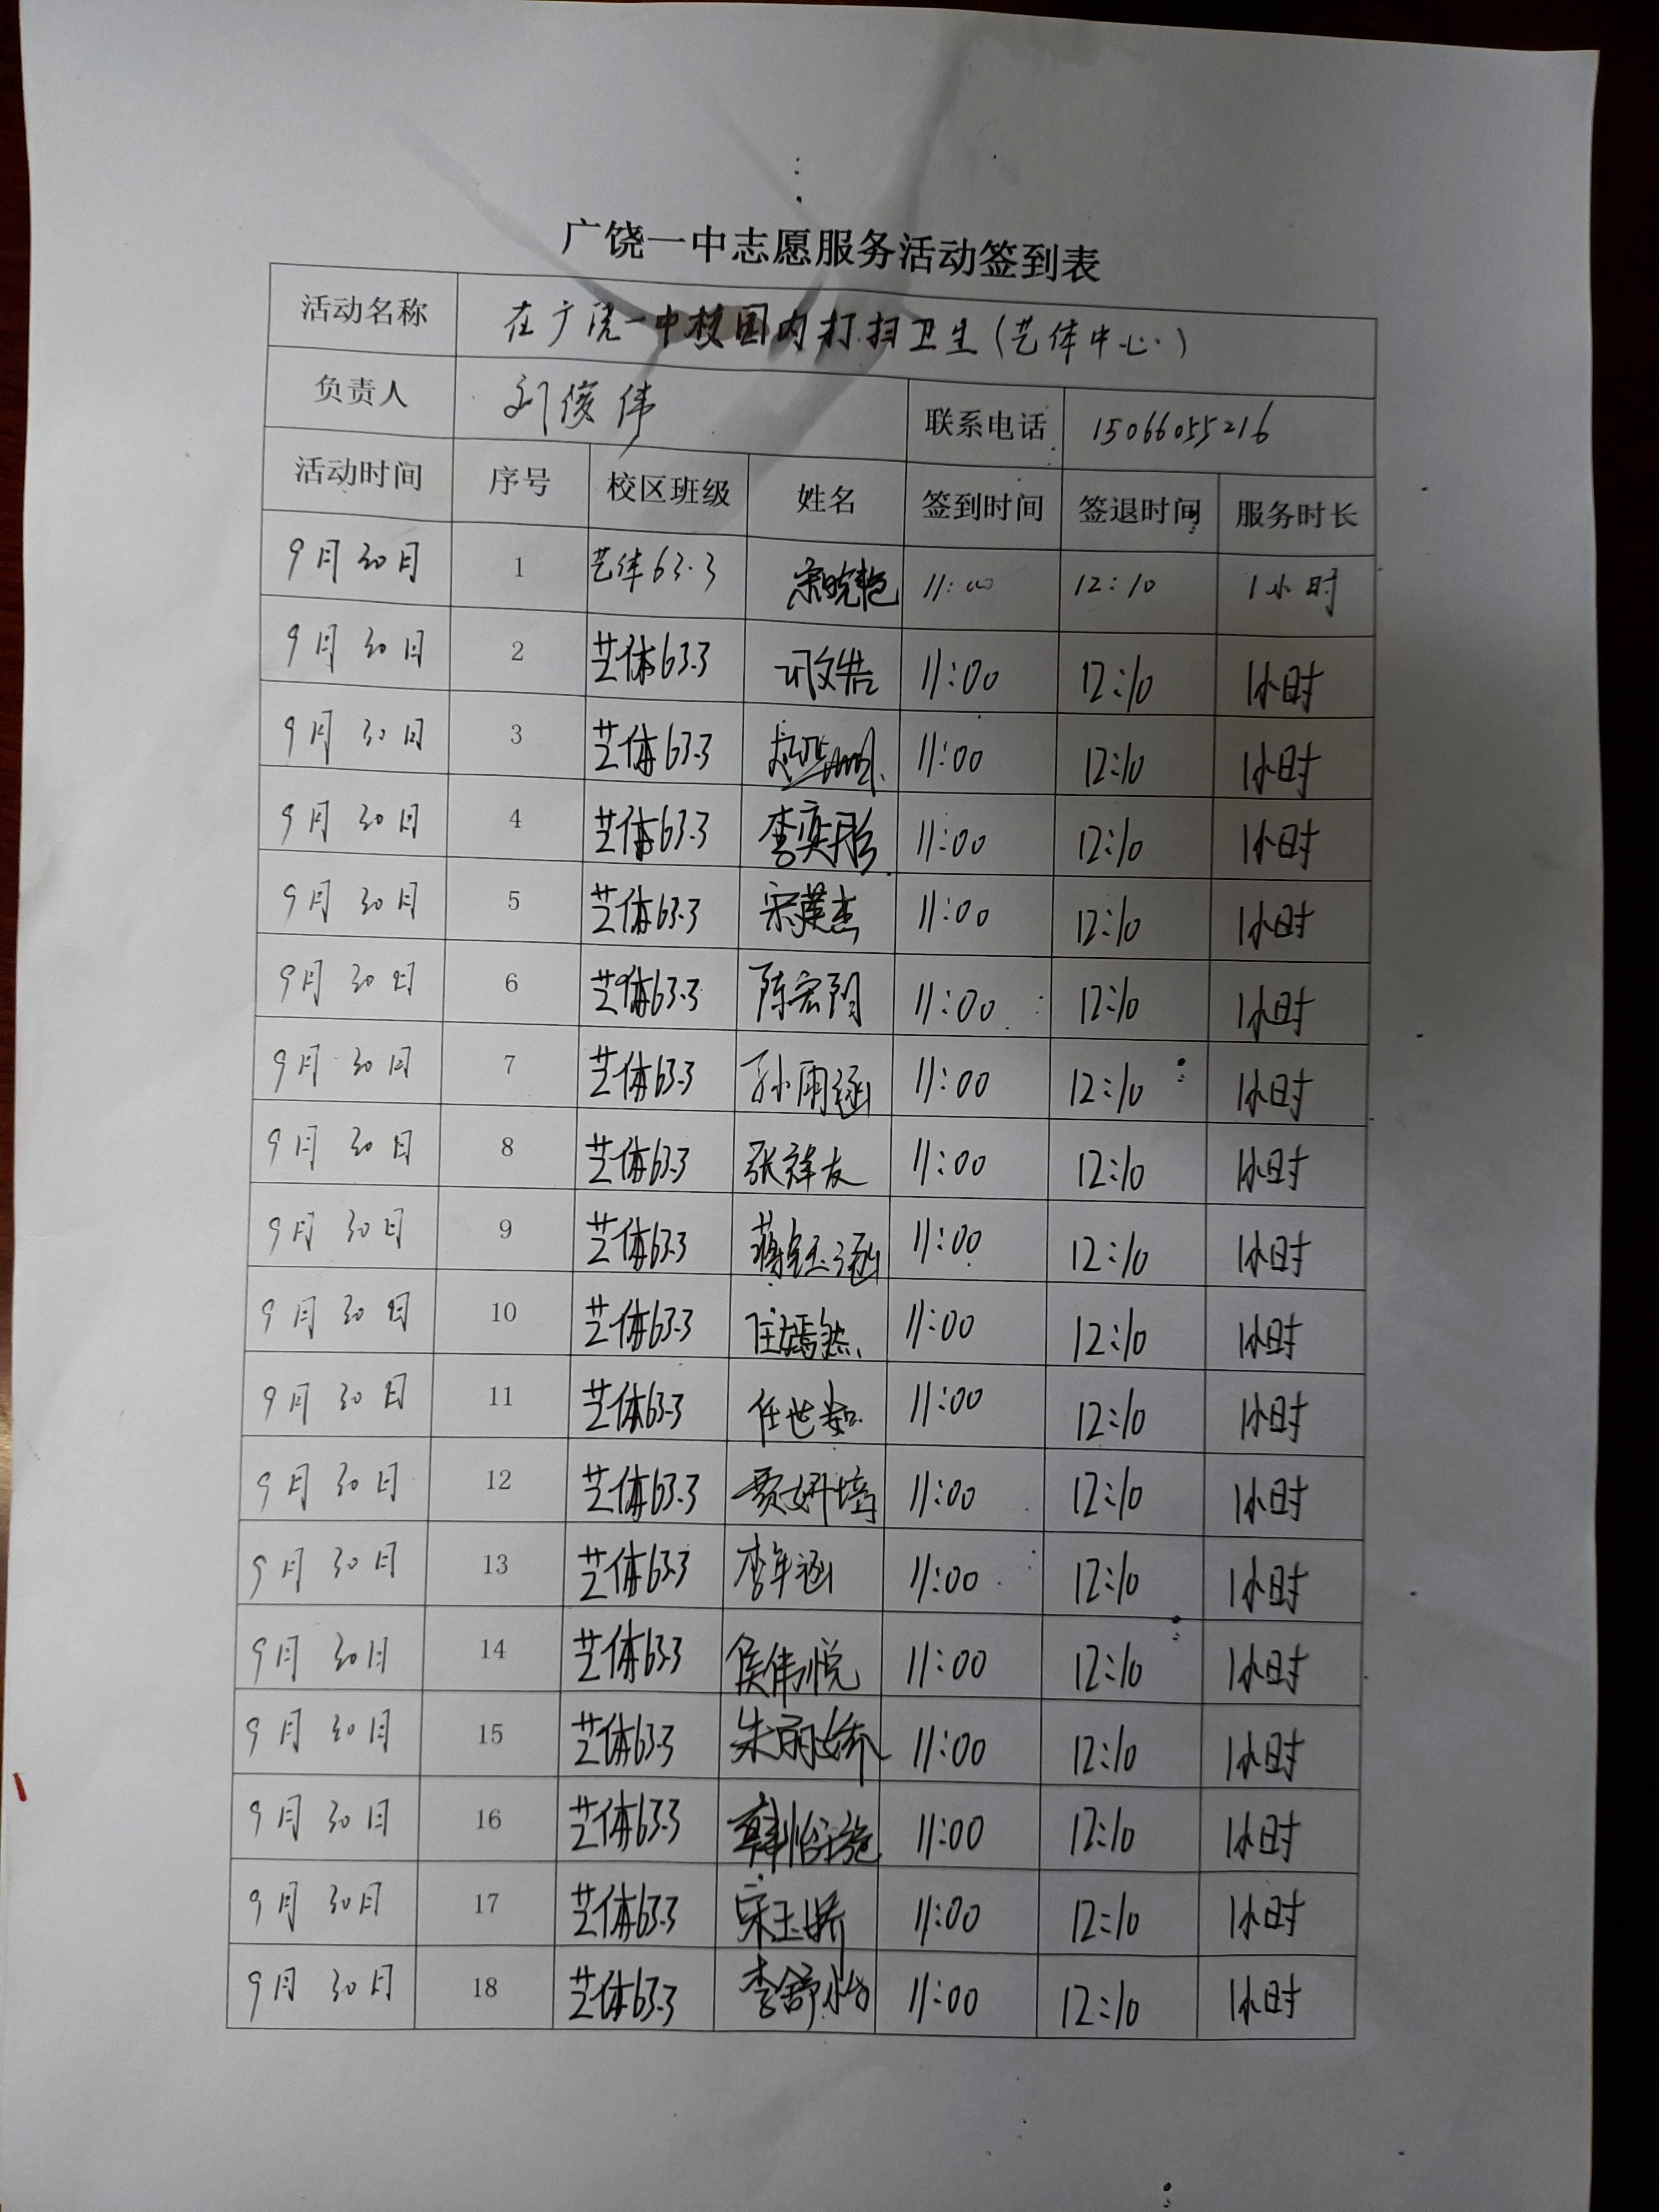 广饶一中志愿服务活动签到表
活动名称 在广饶一中校园内打扫卫生(艺体中心)
负责人 刘俊伟 联系电话 15066055216
活动时间 序号 校区班级 姓名 签到时间 签退时间 服务时长
9月30日 1 艺体63.3 宗晓艳 11:00 12:10 1小时
9月30日 2 艺体63.3 11:00 12:10 1小时
9月30日 3 艺体63.3 11:00 12:10 1小时
9月30日 4 艺体63.3 李奕彤 11:00 12:10 1小时
9月30日 5 艺体63.3 宋英杰 11:00 12:10 1小时
9月30日 6 艺体63.3 11:00 12:10 1小时
9月30日 7 艺体63.3 孙雨涵 11:00 12:10 1小时
9月30日 8 艺体63.3 张祥友 11:00 12:10 1小时
9月30日 9 艺体63.3 蒋钰涵 11:00 12:10 1小时
9月30日 10 艺体63.3 任嫣然 11:00 12:10 1小时
9月30日 11 艺体63.3 11:00 12:10 1小时
9月30日 12 艺体63.3 贾妍培 11:00 12:10 1小时
9月30日 13 艺体63.3 李年涵 11:00 12:10 1小时
9月30日 14 艺体63.3 侯伟悦 11:00 12:10 1小时
9月30日 15 艺体63.3 朱丽娇 11:00 12:10 1小时
9月30日 16 艺体63.3 11:00 12:10 1小时
9月30日 17 艺体63.3 宋玉娇 11:00 12:10 1小时
9月30日 18 艺体63.3 李舒怡 11:00 12:10 1小时